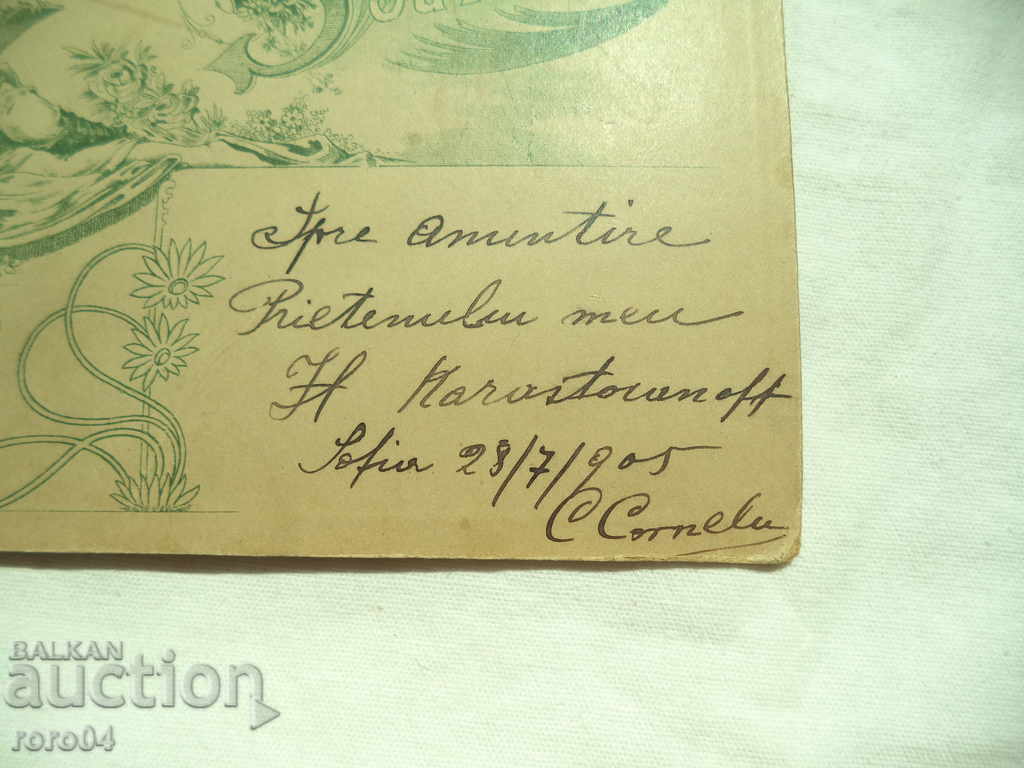 Spre amintire
Prietenului meu
H Karastoianoff
Sofia 28/7/905
C Cornelu
BALKAN
auction
roro04